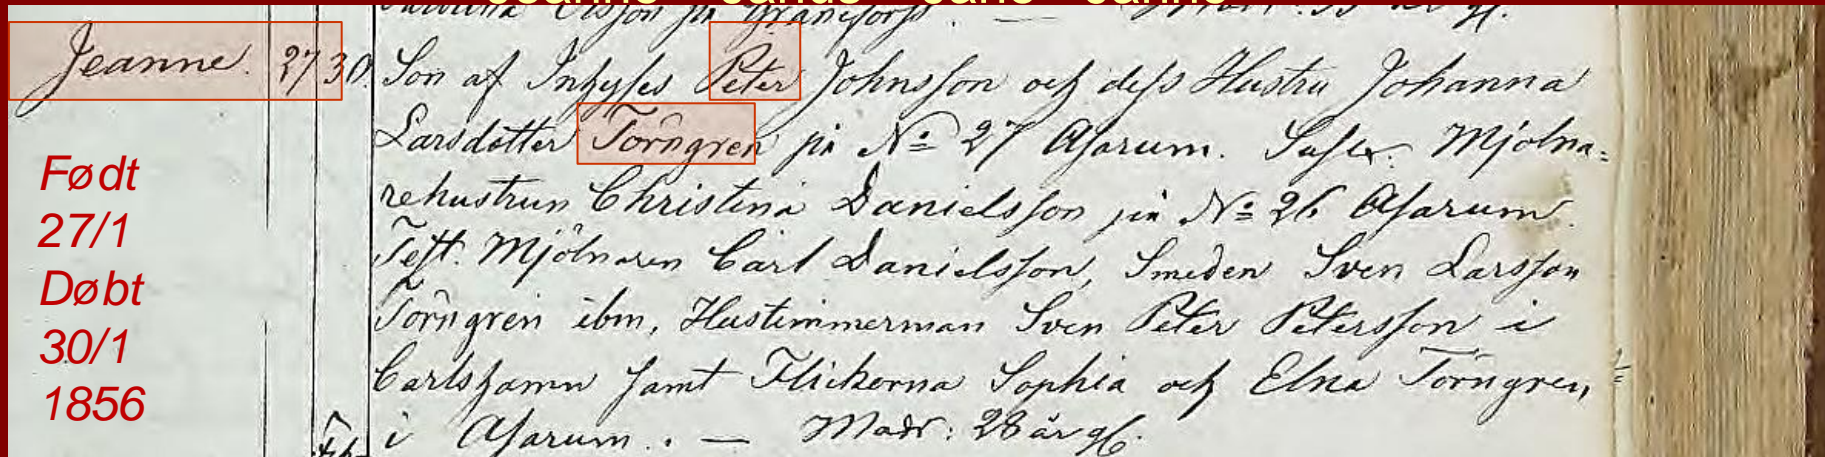 Jeanne - Janus - Jane - Janne
Carolina Olsson på Granefors. —
Jeanne. 27 30. Son af Inhyses Peter Johnsson och dess Hustru Johanna
Larsdotter Törngren på No 27 Asarum. Suscr. Mjölna=
rehustrun Christina Danielsson på No 26 Asarum.
Test. Mjölnaren Carl Danielsson, Smeden Sven Larsson
Törngren ibm, Hustimmerman Sven Peter Petersson i
Carlshamn samt Flickorna Sophia och Elna Törngren,
i Asarum. — Modr: 28 år gl.
Feb.
Født
27/1
Døbt
30/1
1856